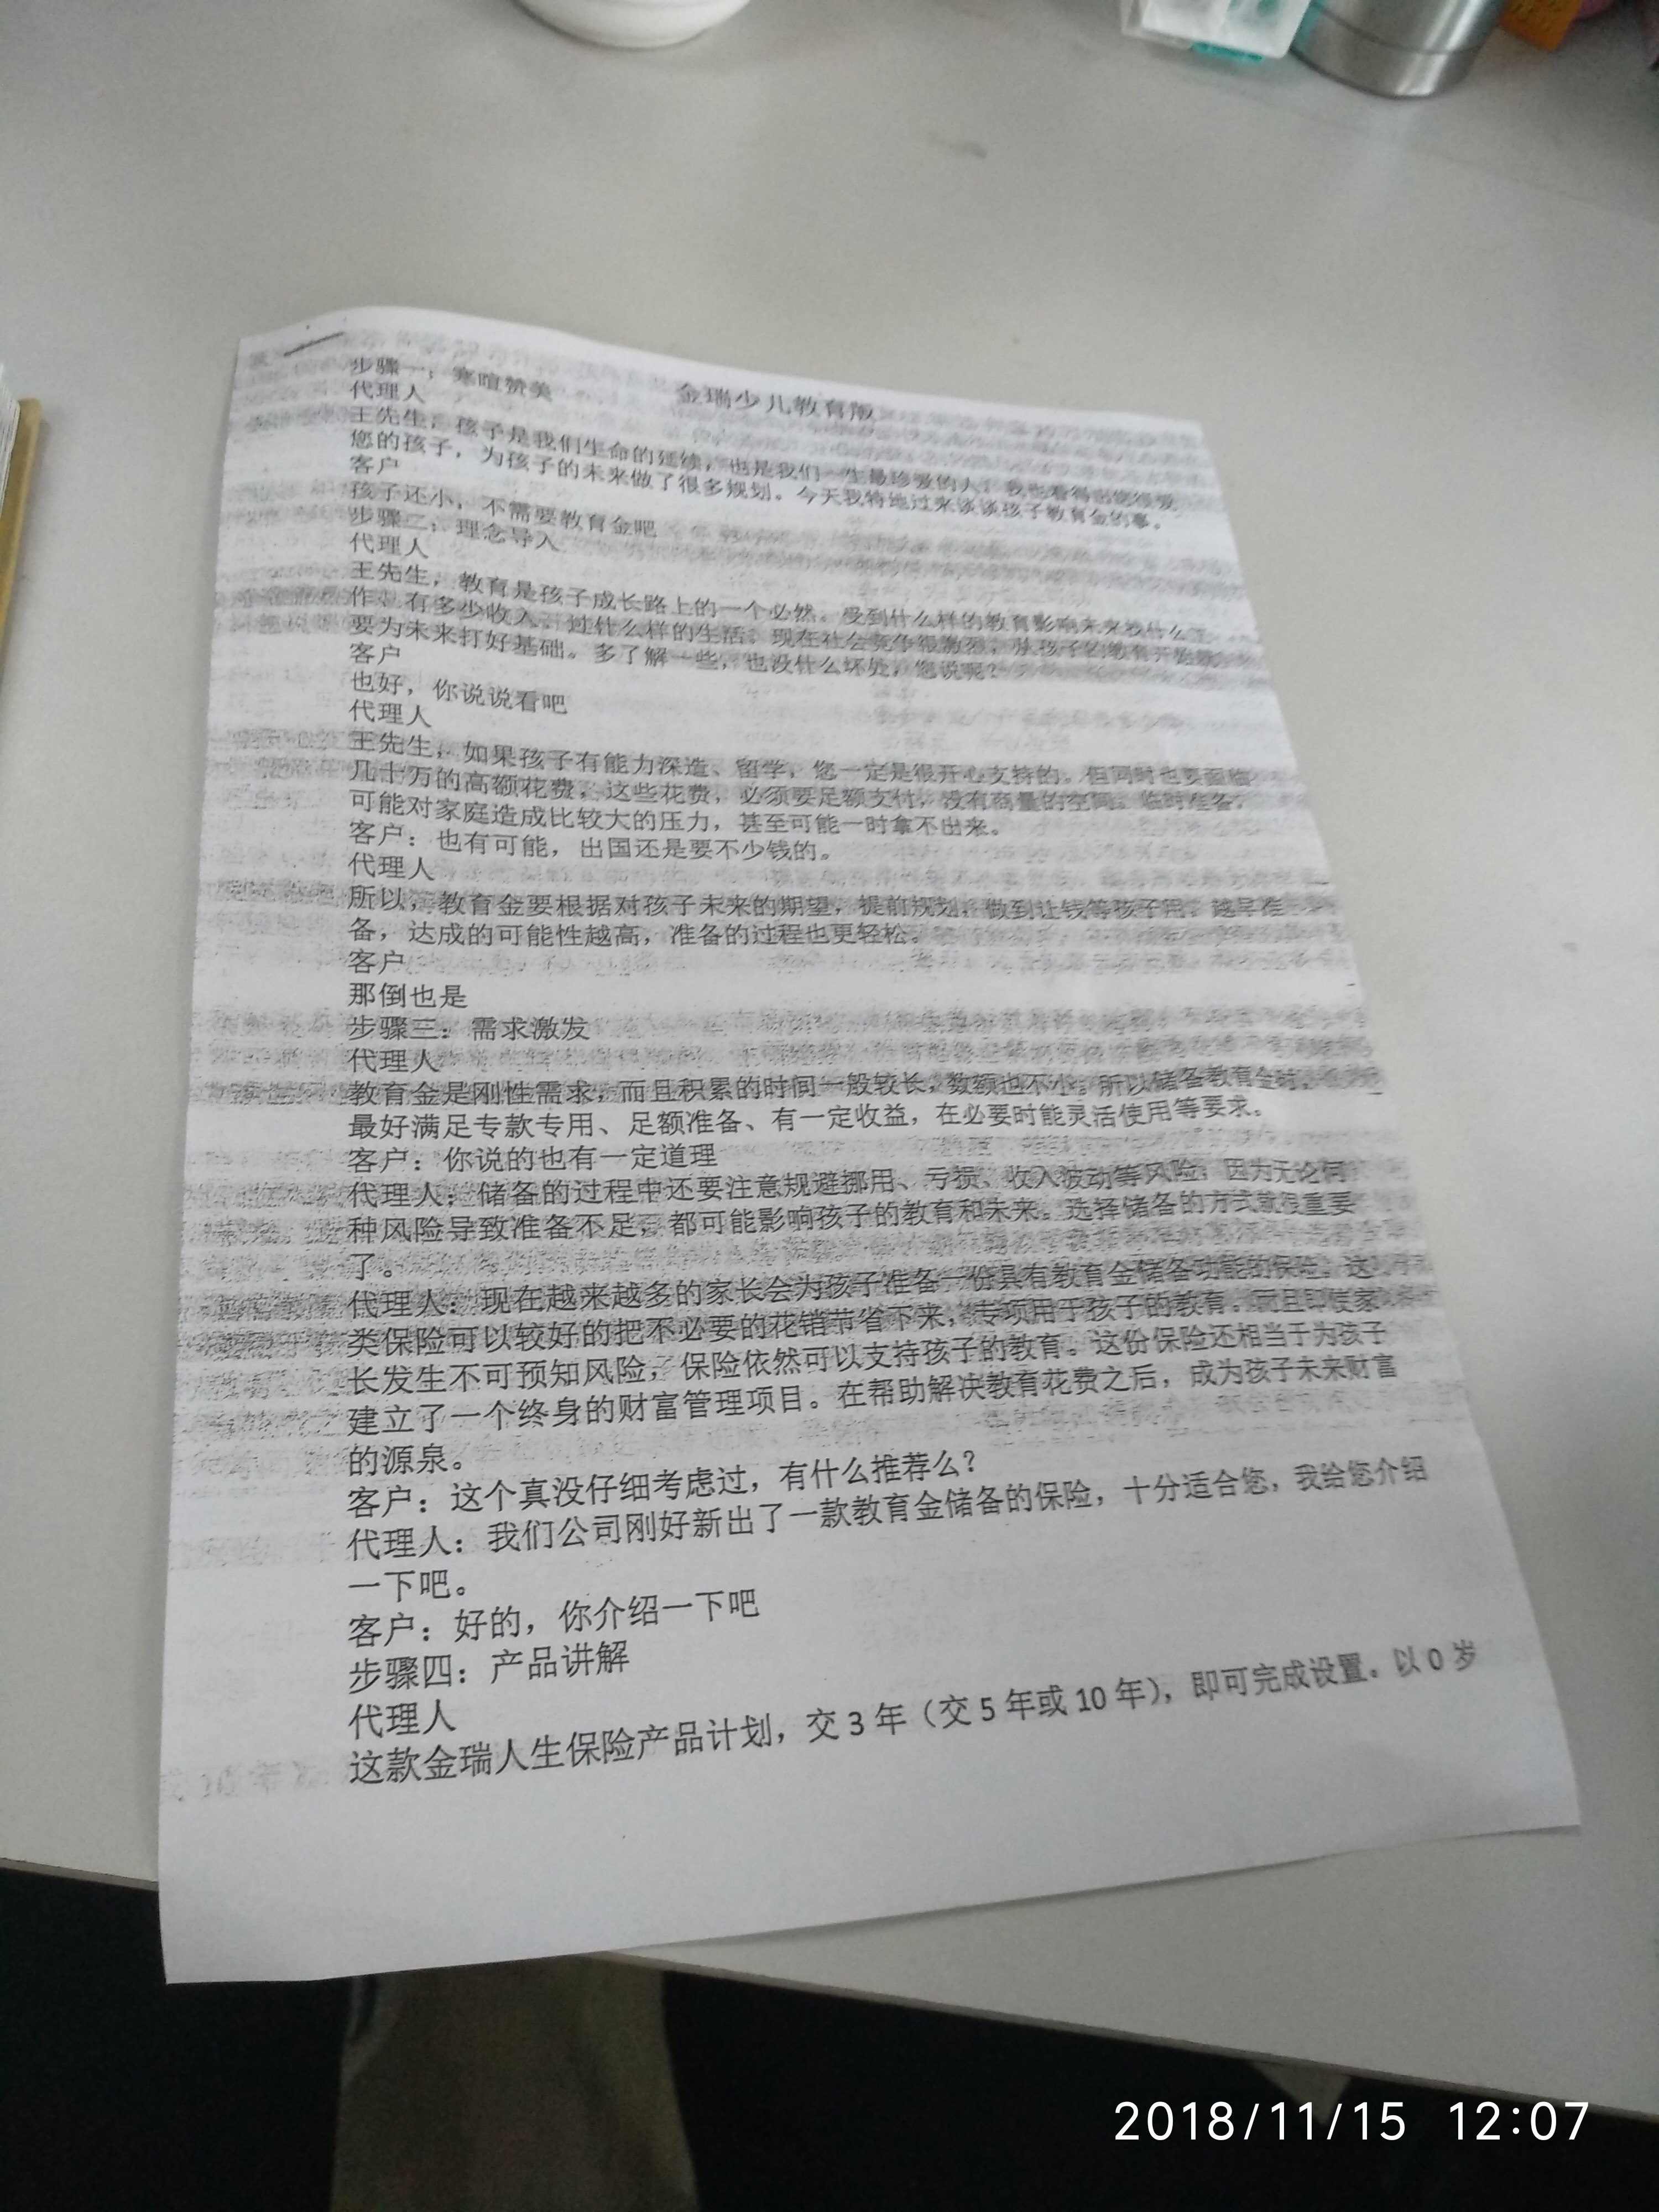 金瑞少儿教育版
步骤一：寒暄赞美
代理人
王先生，孩子是我们生命的延续，也是我们一生最珍爱的人，我也看得出您很爱
您的孩子，为孩子的未来做了很多规划。今天我特地过来谈谈孩子教育金的事。
客户
孩子还小，不需要教育金吧
步骤二：理念导入
代理人
王先生，教育是孩子成长路上的一个必然。受到什么样的教育影响未来找什么工
作、有多少收入、过什么样的生活。现在社会竞争很激烈，从孩子的教育开始就
要为未来打好基础。多了解一些，也没什么坏处，您说呢？
客户
也好，你说说看吧
代理人
王先生，如果孩子有能力深造、留学，您一定是很开心支持的。但同时也要面临
几十万的高额花费，这些花费，必须要足额支付，没有商量的空间。临时准备，
可能对家庭造成比较大的压力，甚至可能一时拿不出来。
客户：也有可能，出国还是要不少钱的。
代理人
所以，教育金要根据对孩子未来的期望，提前规划，做到让钱等孩子用。越早准
备，达成的可能性越高，准备的过程也更轻松。
客户
那倒也是
步骤三：需求激发
代理人
教育金是刚性需求，而且积累的时间一般较长，数额也不小。所以储备教育金时，
最好满足专款专用、足额准备、有一定收益，在必要时能灵活使用等要求。
客户：你说的也有一定道理
代理人：储备的过程中还要注意规避挪用、亏损、收入波动等风险。因为无论何
种风险导致准备不足，都可能影响孩子的教育和未来。选择储备的方式就很重要
了。
代理人：现在越来越多的家长会为孩子准备一份具有教育金储备功能的保险。这
类保险可以较好的把不必要的花销节省下来，专项用于孩子的教育。而且即使家
长发生不可预知风险，保险依然可以支持孩子的教育。这份保险还相当于为孩子
建立了一个终身的财富管理项目。在帮助解决教育花费之后，成为孩子未来财富
的源泉。
客户：这个真没仔细考虑过，有什么推荐么？
代理人：我们公司刚好新出了一款教育金储备的保险，十分适合您，我给您介绍
一下吧。
客户：好的，你介绍一下吧
步骤四：产品讲解
代理人
这款金瑞人生保险产品计划，交3年（交5年或10年），即可完成设置。以0岁
2018/11/15 12:07